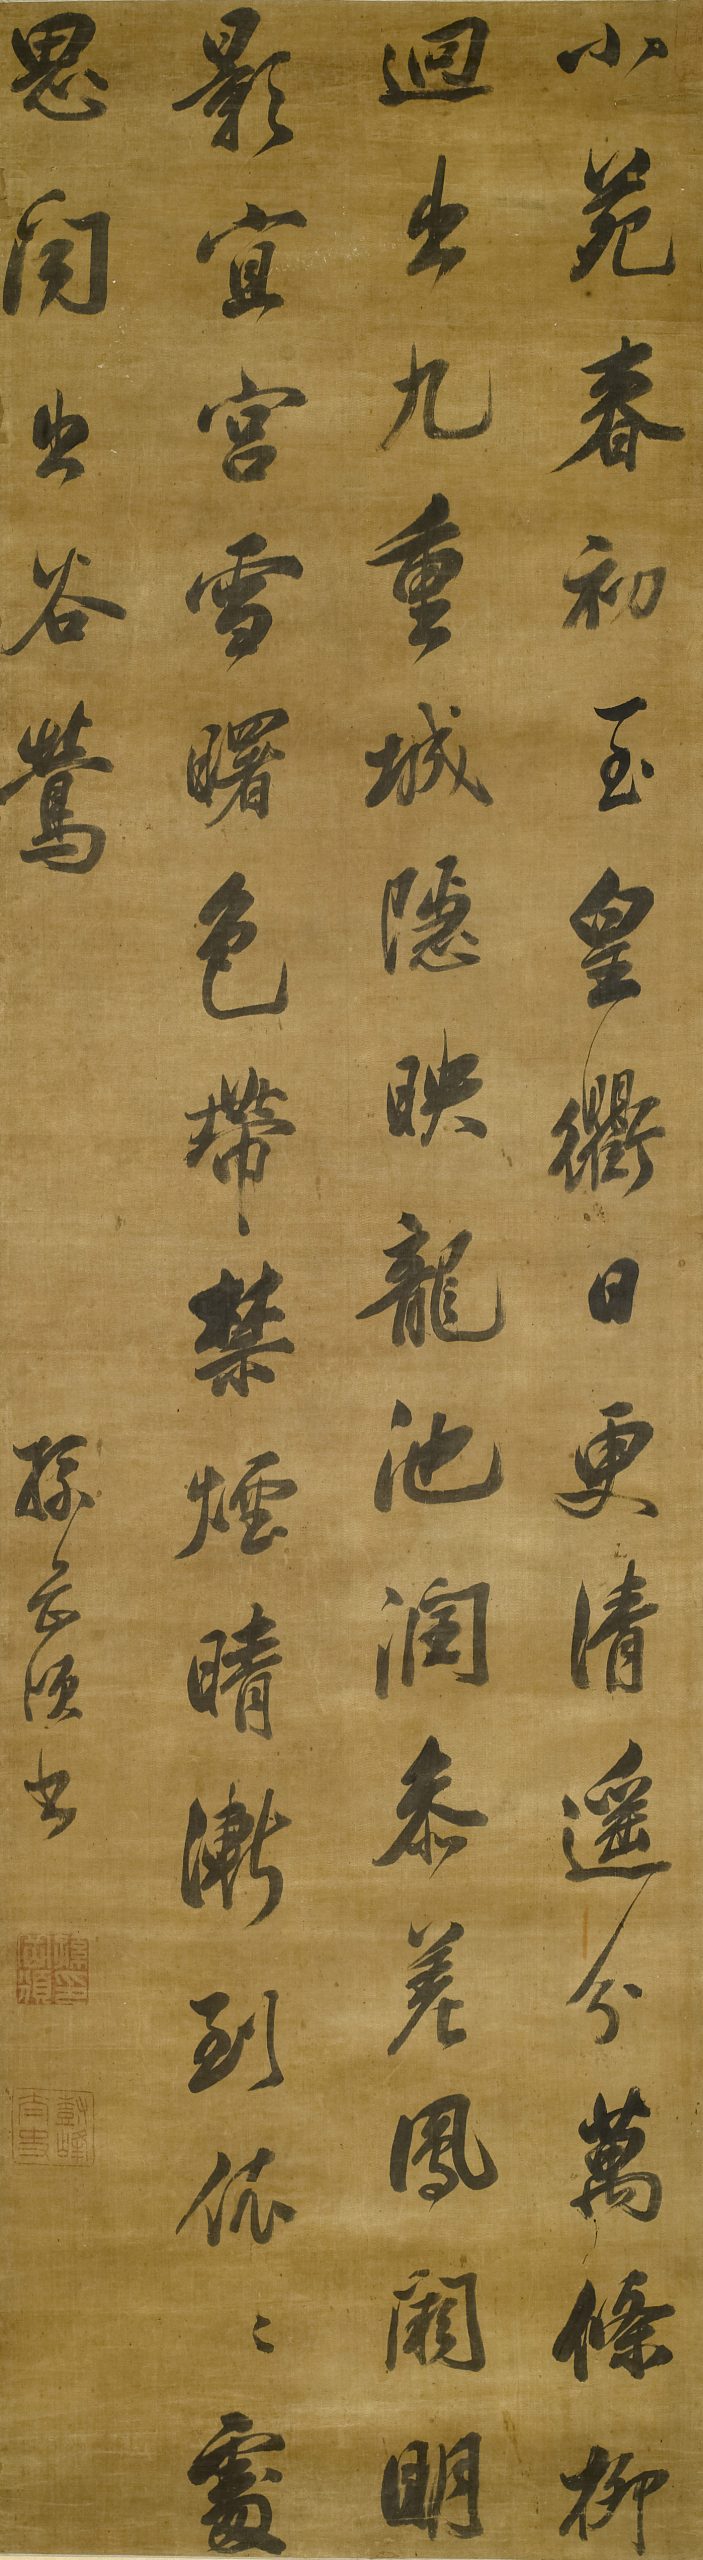 小苑春初至皇衢日更清遥分萬條柳
迥出九重城隱映龍池潤參差鳳闕明
影宜宮雪曙色帶禁煙晴漸到依〻處
思聞出谷鶯
孫岳頒書
孫岳頒印